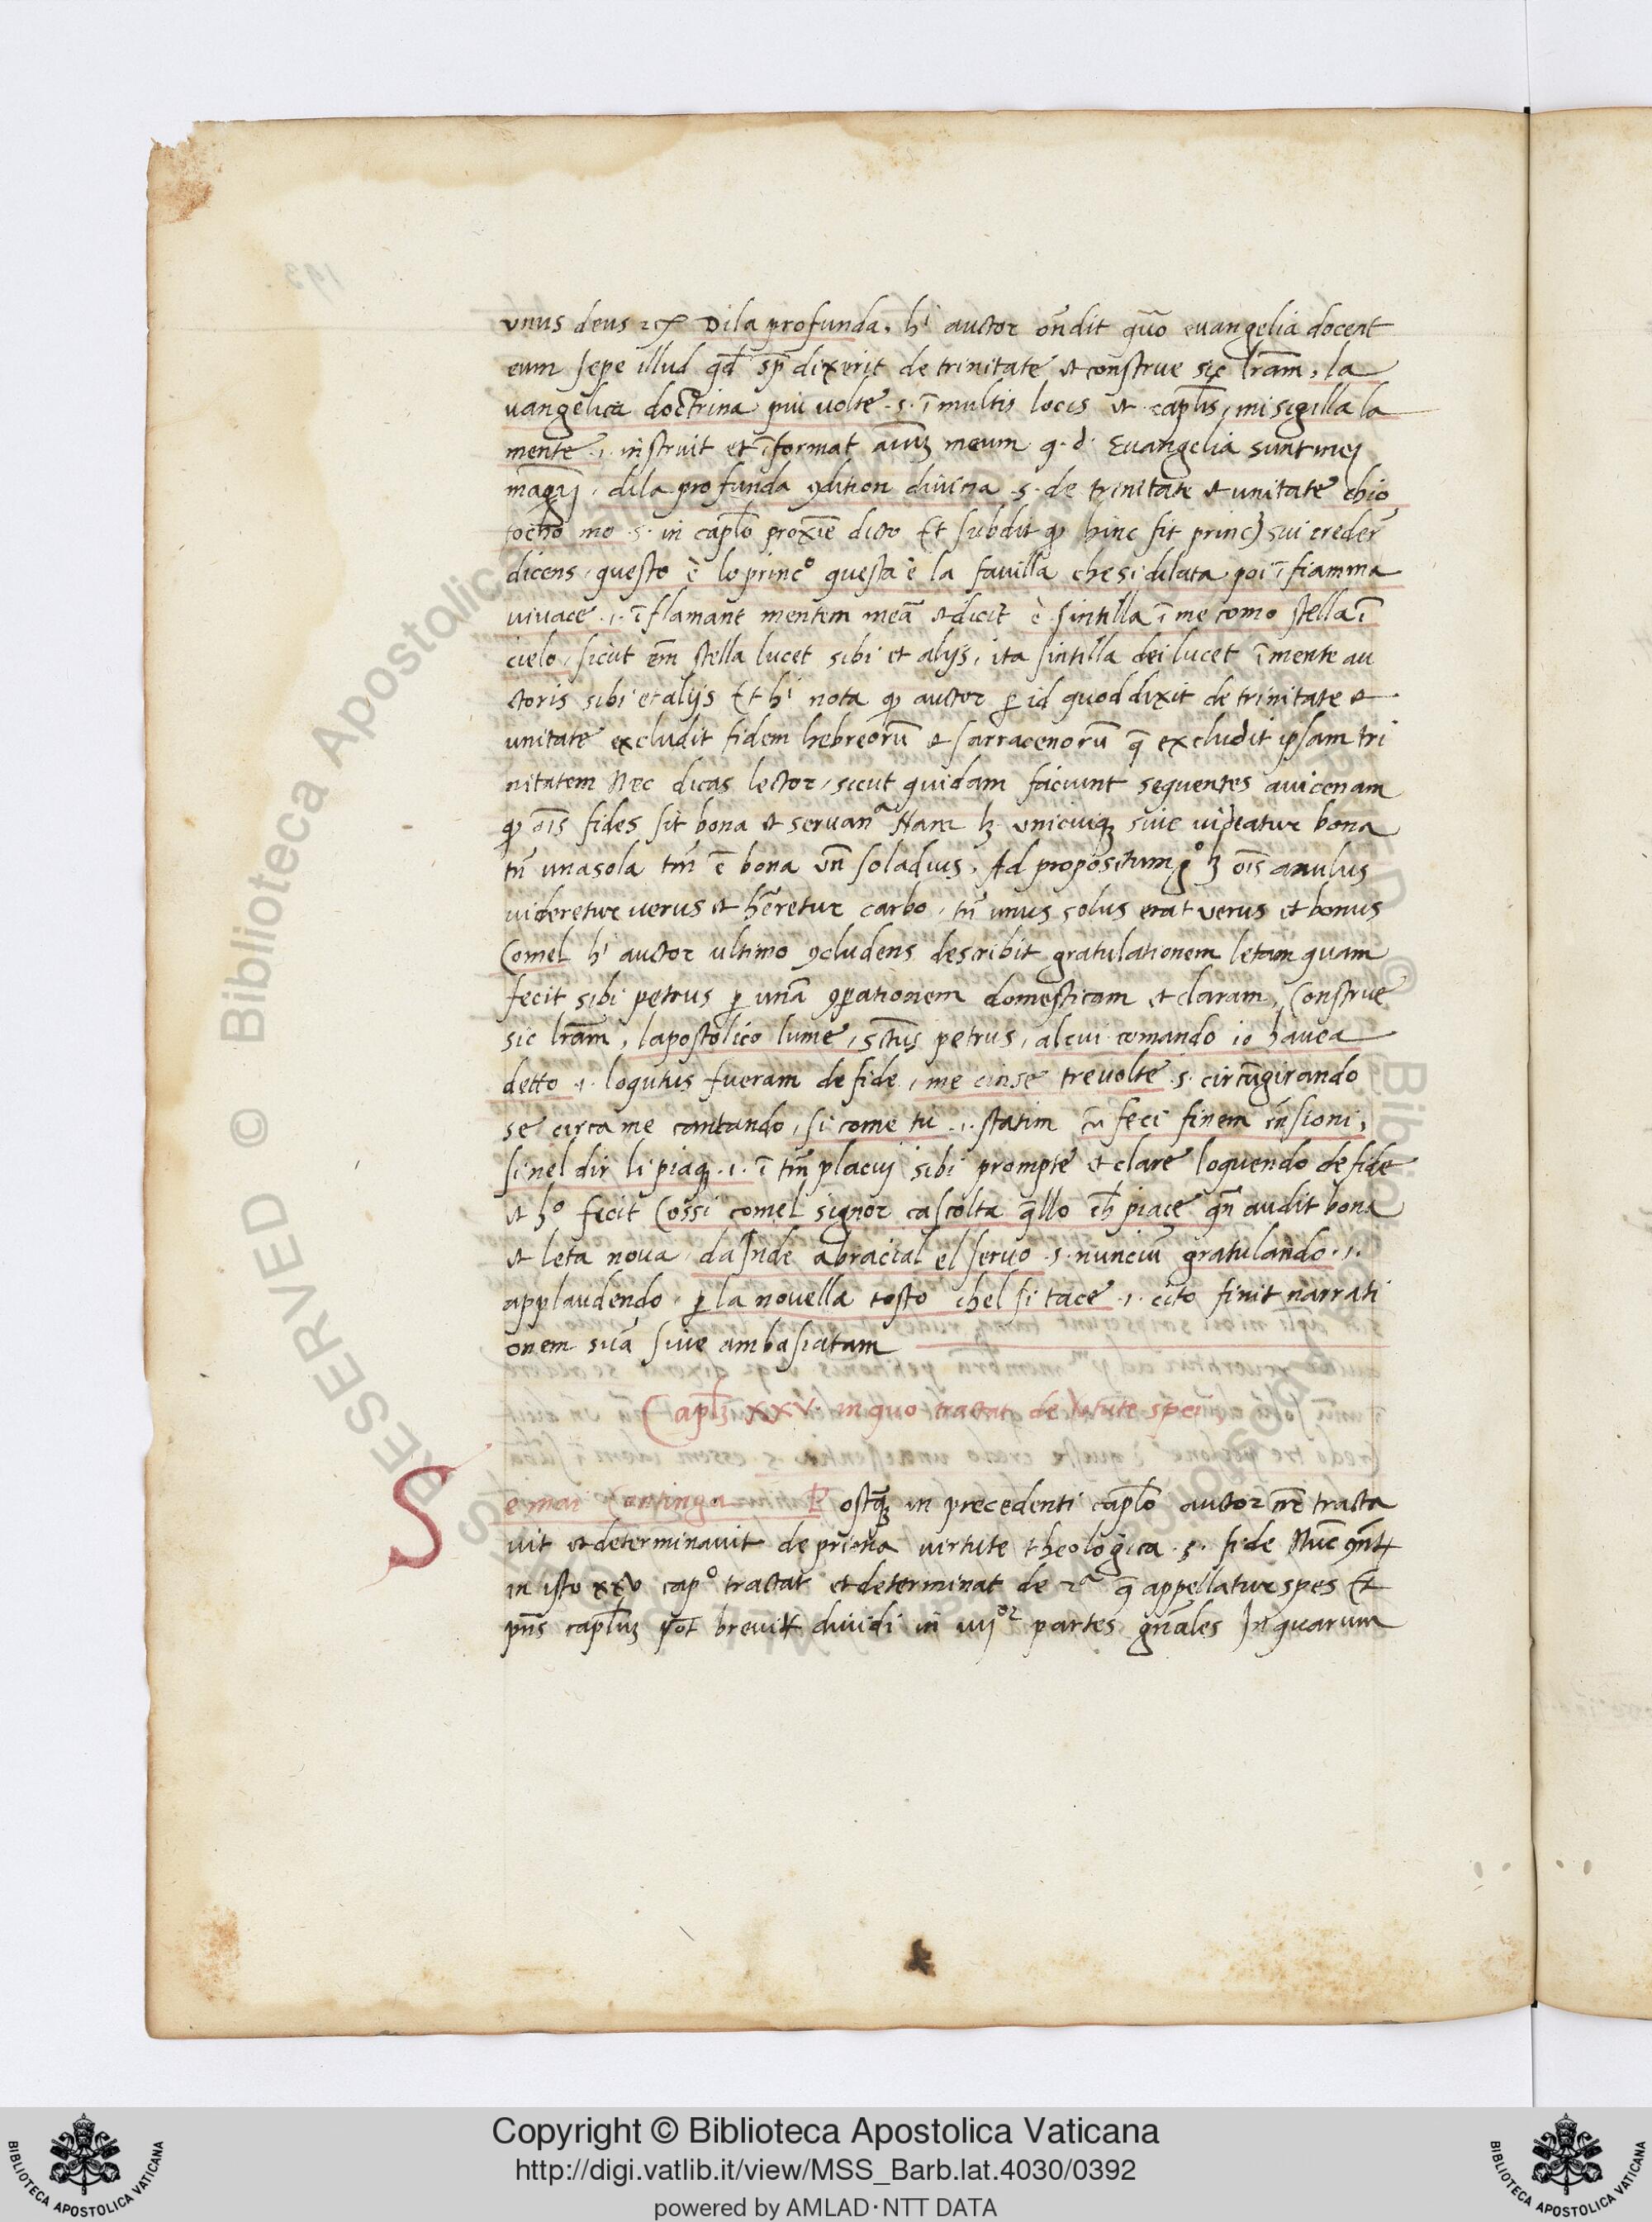 vnus deus ⁊cet̄ Dila profunda, hⁱ auctor on̄dit quō euangelia docent
eum sepe illud qd̄ sp̄ dixerit de trinitate et construe sic lr̄am, la
uangelica doctrina piu uolte .s. ī multis locis et cap̄lis, mi sigilla la
mente .i. instruit et īformat aīuꝫ meum q. d. Euangelia sunt mei
mag̃ri, dila profunda ꝯdition diuina .s. de trinitate et unitate chio
tocho mo .s. in cap̄lo proxīe dicto Et subdit ꝙ hinc fit princ sui creder̄
dicens, questo è lo princº questa è la fauilla che si dilata poi ī fiamma
uiuace .i. ī flamant mentem meā et dicit è sintilla ī me como stella ī
cielo, sicut em̄ stella lucet sibi et alijs, ita sintilla dei lucet ī mente au
ctoris sibi et alijs Et hⁱ nota ꝙ auctor ꝑ id quod dixit de trinitate et
unitate excludit fidem hebreorū et sarracenorū q̄ excludit ipsam tri
nitatem Nec dicas lector, sicut quidam faciunt sequentes auicenam
ꝙ oīs fides sit bona et seruanᵃ Nam lꝫ unicuiqꝫ sue uideatur bona
tn̄ una sola tm̄ ē bona un̄ soladius, Ad propositum gº lꝫ oīs anulus
uideretur uerus et hēretur carbo, tn̄ unus solus erat verus et bonus
Comel hⁱ auctor ultimo ꝯcludens describit gratulationem letam quam
fecit sibi petrus ꝑ unā ꝯꝑationem domesticam et claram, Construe
sic lr̄am, lapostolico lume, sctūs petrus, al cui comando io hauea
detto .i. loqutus fueram de fide, me cinse tre uolte .s. circūgirando
se circa me cantando, si come tu .i. statim feci finem sioni,
si nel dir li piaqꝫ .i. ī tm̄ placuj sibi prompte et clare loquendo de fide
et hº fecit Cossi comel signor cascolta q̄llo ch̄ piace qn̄ audit bona
et leta noua, da Inde abracial el seruo .s. nunciū gratulando .i.
applaudendo, ꝑ la nouella tosto chel si tace .i. cito finit narrati
onem suā siue ambasiatam
Cap̄lꝫ XXV. in quo tractat de Vtute spei,
Se mai Continga Postqꝫ in precedenti cap̄lo auctor nr̄e tracta
uit et determinauit de prima uirtute theologica .s. fide Nūc ꝯn̄tr
in isto xxv capº tractat et determinat de 2ᵃ q̄ appellatur spes Et
pn̄s cap̄luꝫ pōt breuitr diuidi in iiijᵒʳ partes gn̄ales In quarum
Copyright © Biblioteca Apostolica Vaticana
http://digi.vatlib.it/view/MSS_Barb.lat.4030/0392
powered by AMLAD·NTT DATA
BIBLIOTECA APOSTOLICA VATICANA
BIBLIOTECA APOSTOLICA VATICANA